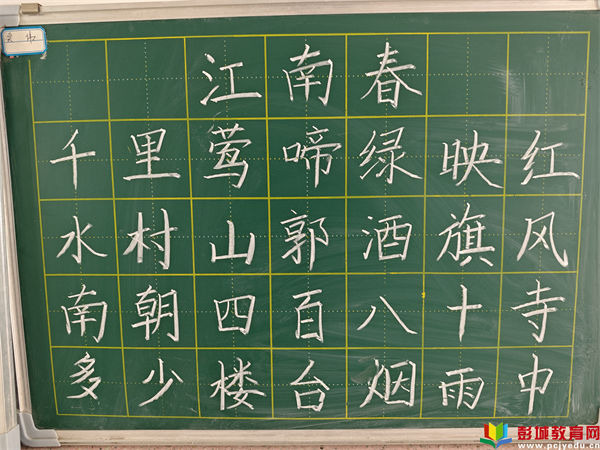 江南春
千里莺啼绿映红
水村山郭酒旗风
南朝四百八十寺
多少楼台烟雨中
彭城教育网
www.pcjyedu.cn